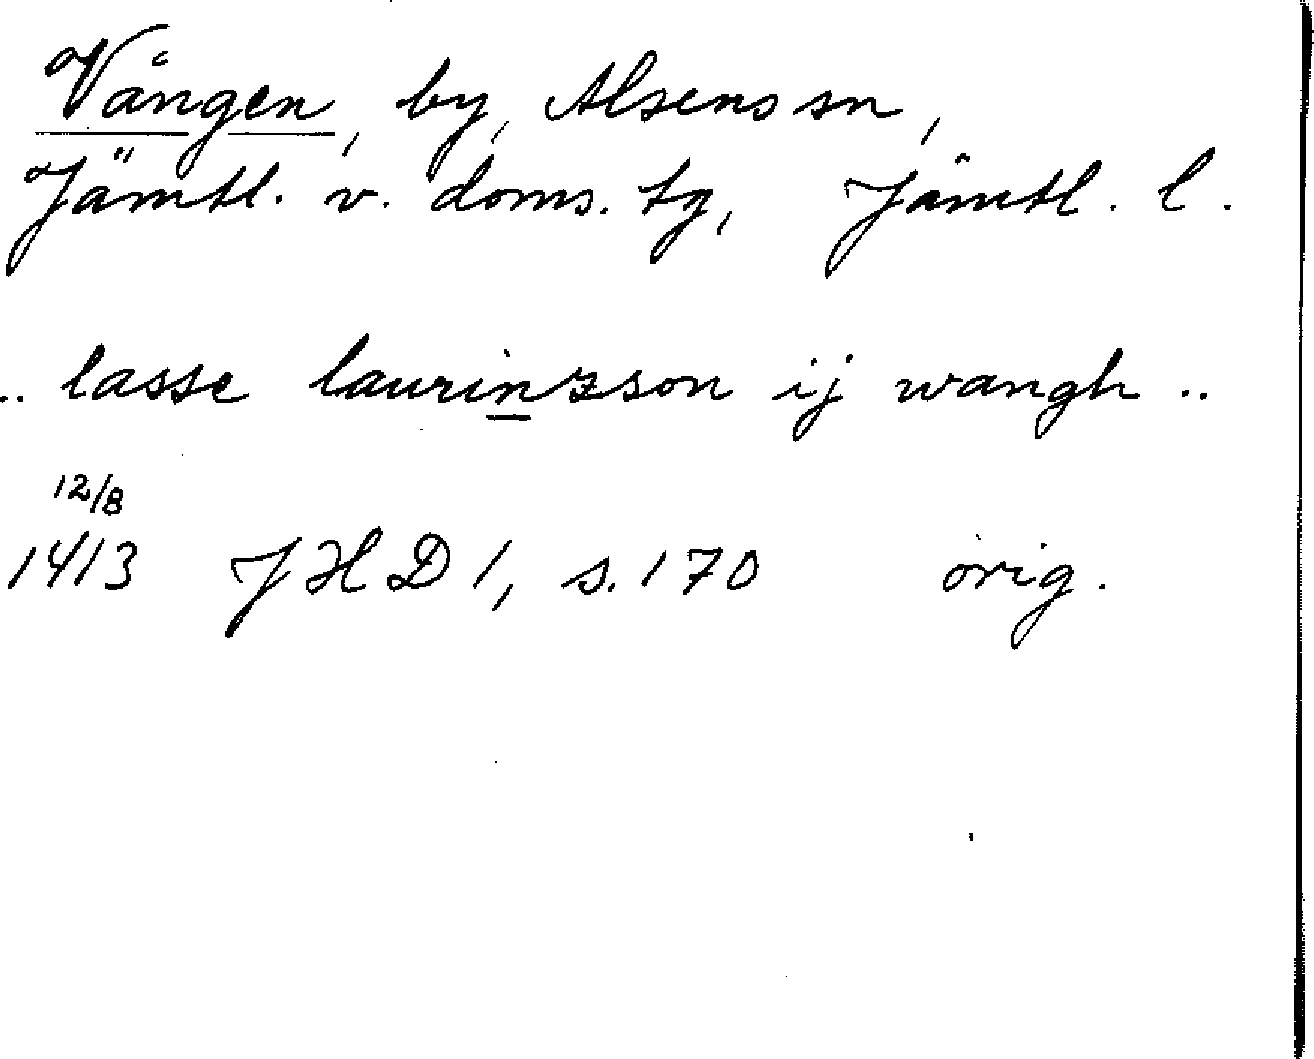 Vången, by, Alsens sn,
Jämtl. v. doms. tg, Jämtl. l.
.. lasse laurinzson ij wangh ..
12/8
1413 JHD 1, s. 170 orig.